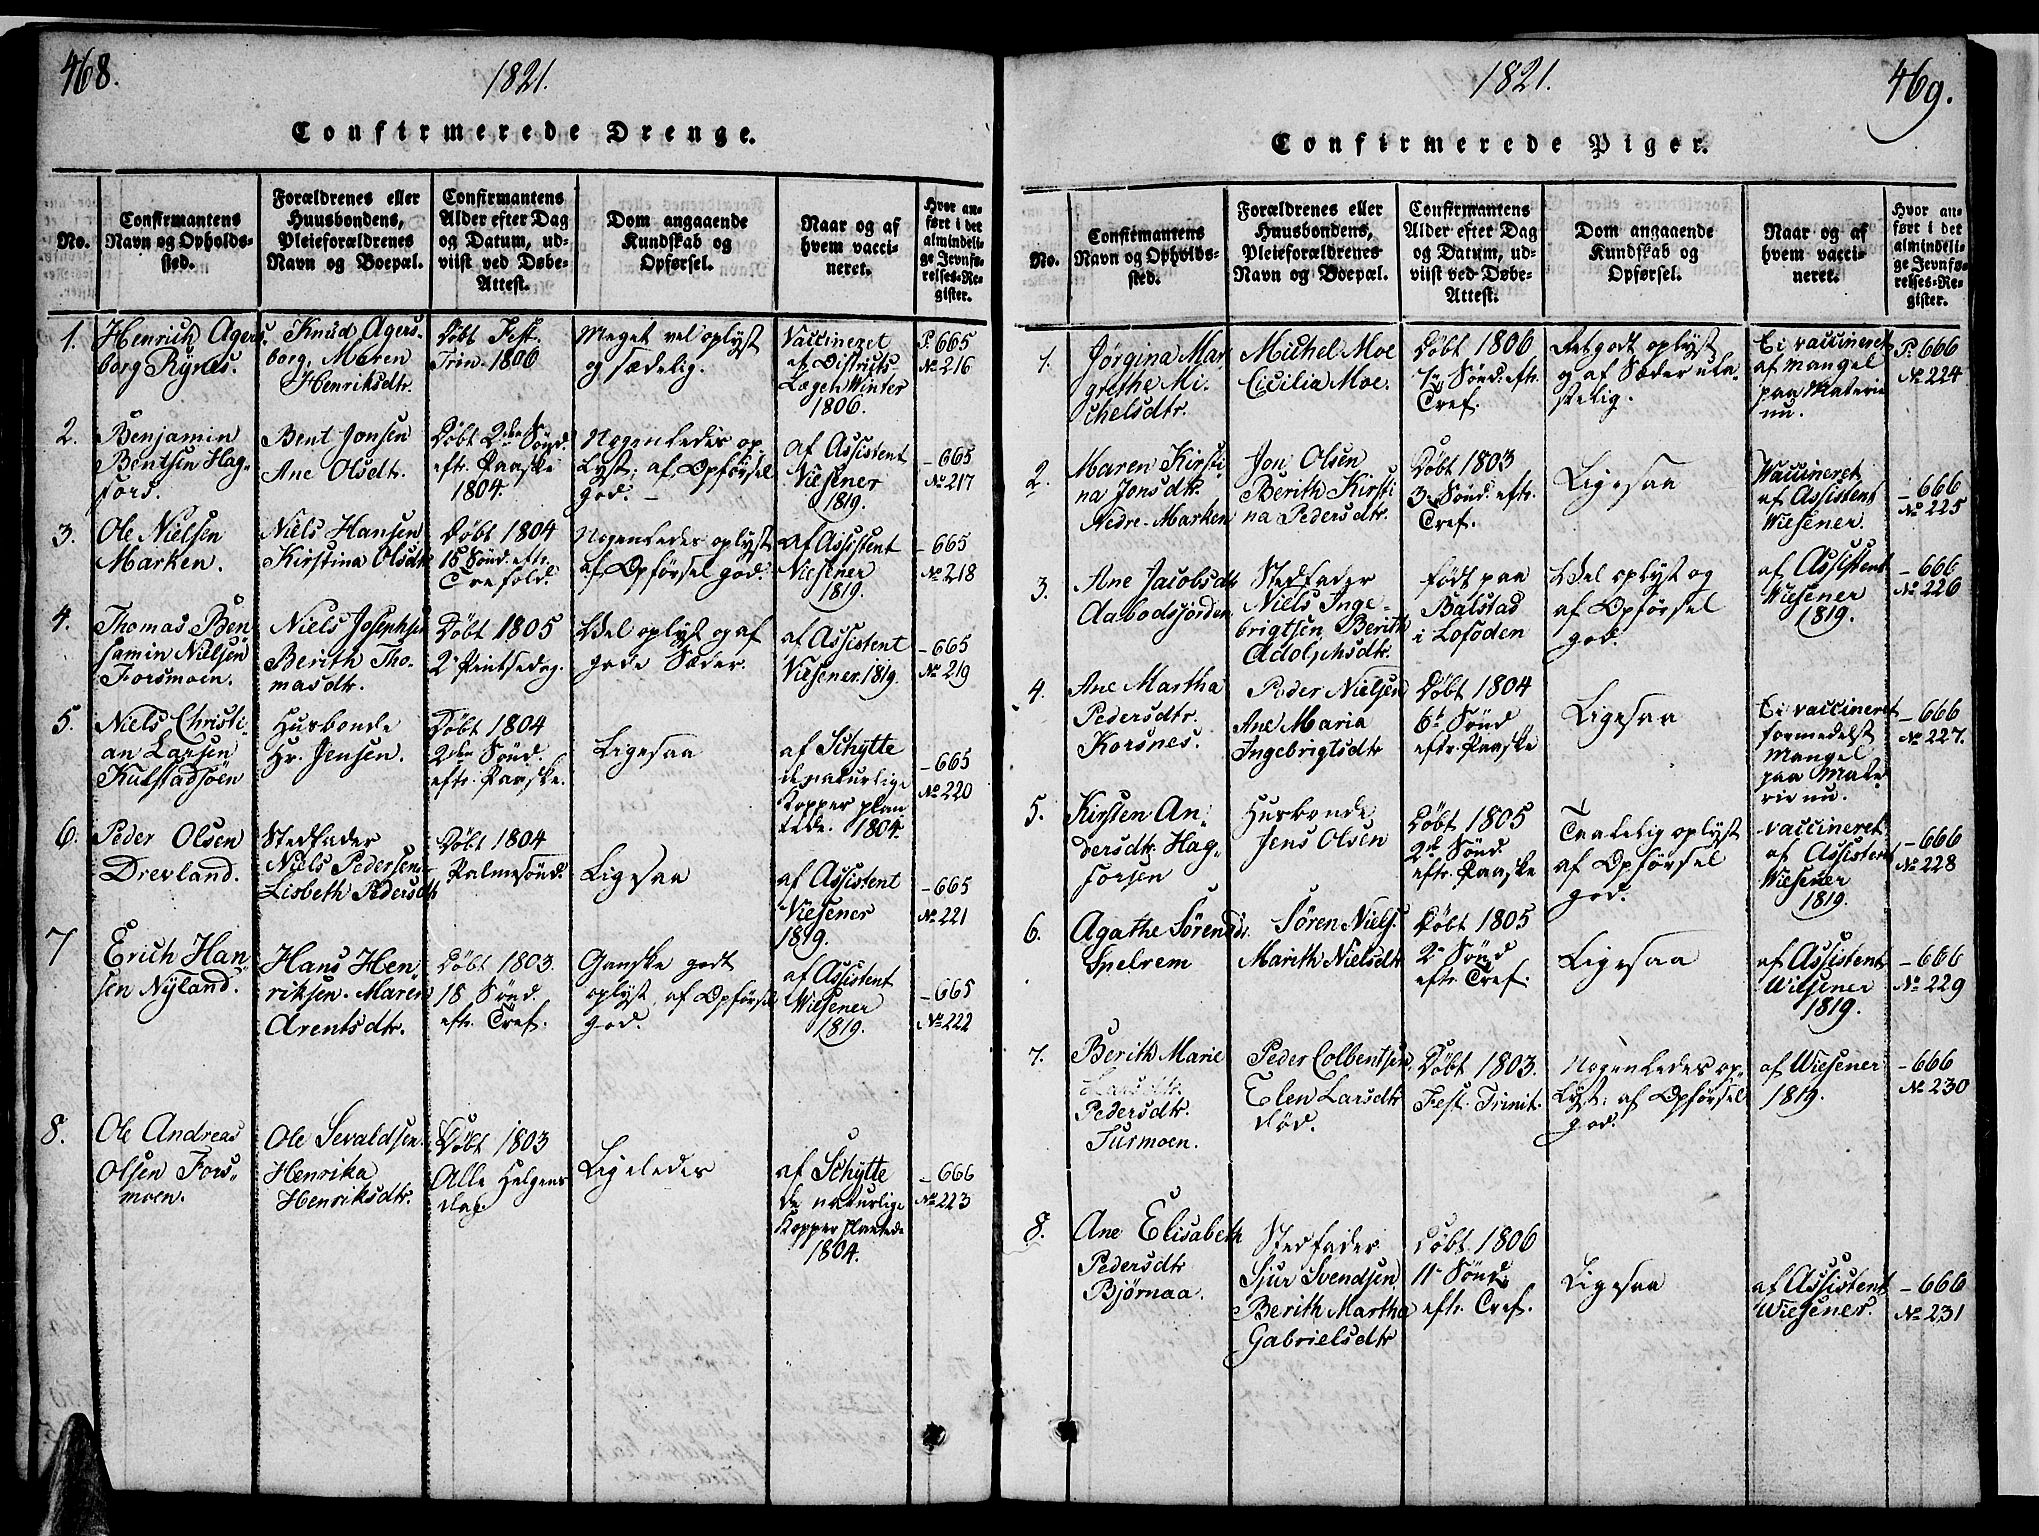 468.
1821.
Confirmerede Drenge.
No.
Confirmantens
Navn og Opholds-
sted.
Forældrenes eller
Huusbondens,
Pleieforældrenes
Navn og Boepæl.
Confirmantens
Alder efter Dag
og Datum, ud-
viist ved Døbe-
Attest.
Dom angaaende
Kundskab og
Opførsel.
Naar og af
hvem vacci-
neret.
Hvor an-
ført i det
almindeli-
ge Jevnfø-
relses-Re-
gister.
1.
Henrich Agers-
borg Rynes.
Knud Agers-
borg, Maren
Henriksdtr.
Døbt Fest.
Trin. 1806
Meget vel oplyst
og sædelig.
Vaccineret
af Districts
Læge Winter
1806.
P. 665
No 216
2.
Benjamin
Bentsen Hag-
fors.
Bent Jonsen
Ane Olsdtr.
Døbt 2den Sønd.
eftr. Paaske
1804.
Nogenledes op-
lyst; af Opførsel
god.
af Assistent
Wiesener
1819.
- 665
No 217
3.
Ole Nielsen
Marken.
Niels Hansen
Kirstina Olsdtr
Døbt 1804
18 Sønd. eftr.
Trefold.
Nogenledes oplyst
af Opførsel god.
af Assistent
Wiesener
1819.
- 665
No 218
4.
Thomas Ben-
jamin Nielsen
Forsmoen.
Niels Josephsen
Berith Tho-
masdtr.
Døbt 1805
2 Pintsedag.
Vel oplyst og af
gode Sæder.
af Assistent
Wiesener. 1819.
- 665
No 219
5.
Niels Christi-
an Larsen
Kulstadsjøen
Husbonde
Hr. Jensen.
Døbt 1804
2den Sønd.
eftr. Paaske.
Ligesaa
af Schytte
de naturlige
Kopper plan
tede. 1804.
- 665
No 220
6.
Peder Olsen
Drevland.
Stedfader
Niels Pedersen
Lisbeth Pedersdtr
Døbt 1804
Palmesønd.
Ligesaa
af Assistent
Wiesener
1819.
- 665
No 221
7
Erich Han-
sen Nyland.
Hans Hen-
riksen. Maren
Arentsdtr.
Døbt 1803.
18 Sønd.
eftr. Tref.
Ganske godt
oplyst, af Opførsel
god.
af Assistent
Wiesener
1819.
- 665
No 222
8.
Ole Andreas
Olsen Fors-
moen.
Ole Sevaldsen.
Henrika
Henriksdtr.
Døbt 1803
Alle Helgens
dag.
Ligeledes
af Schytte
de naturlige
Kopper plantede
1804.
- 666
No 223
1821.
469.
Confirmerede Piger.
No.
Confirmantens
Navn og Opholds-
sted.
Forældrenes eller
Huusbondens,
Pleieforældrenes
Navn og Boepæl.
Confirmantens
Alder efter Dag
og Datum, ud-
viist ved Døbe-
Attest.
Dom angaaende
Kundskab og
Opførsel.
Naar og af
hvem vacci-
neret.
Hvor an-
ført i det
almindeli-
ge Jevnfø-
relses-Re-
gister.
1.
Jørgina Mar-
grethe Mi-
chelsdtr.
Michel Moe
Cicilia Moe.
Døbt 1806
Sønd. eftr.
Tref.
Ret godt oplyst
og af Sæder ula-
stelig.
Ei vaccineret
af Mangel
paa Materie
nu.
P. 666
No 224
2.
Maren Kirsti
na Jonsdtr.
Nedre-Marken
Jon Olsen
Berith Kirsti
na Pedersdtr.
Døbt 1803
3 Sønd. eftr.
Tref.
Ligesaa
Vaccineret
af Assistent
Wiesener.
- 666
No 225
3.
Ane Jacobsdtr
Aabodsjorden
Stedfader
Niels Inge-
brigtsen Berith
Adolphsdtr.
født paa
Balstad
i Lofoden
Vel oplyst og
af Opførsel
god.
af Assistent
Wiesener
1819.
- 666
No 226
4.
Ane Martha
Pedersdtr.
Korsnes.
Peder Nielsen
Ane Maria
Ingebrigtsdtr
Døbt 1804
6te Sønd
eftr. Paaske
Ligesaa
Ei vaccineret
formedelst
Mangel
paa Mate
rie nu.
- 666
No 227.
5.
Kirsten An-
dersdtr. Hag-
forsen
Husbonde
Jens Olsen
Døbt 1805
2den Sønd
eftr. Paaske
Taalelig oplyst
af Opførsel
god.
vaccineret
af Assistent
Wiesener
1819.
- 666
No 228
6.
Agathe Sørensdtr.
Spelrem
Søren Niels.
Marith Nielsdtr
Døbt 1805
2 Sønd
eftr. Tref.
Ligesaa
af Assistent
Wiesener
1819.
- 666
No 229
7.
Berith Marie
Larsdtr.
Pedersdtr.
Turmoen.
Peder Colbentsen
Elen Larsdtr
død.
Døbt 1803.
Fest. Trinit.
Nogenledes op-
lyst; af Opførsel
god.
af Wiesener
1819.
- 666
No 230
8.
Ane Elisabeth
Pedersdtr
Bjørnaa.
Stedfader
Sjur Svendsen
Berith Martha
Gabrielsdtr
Døbt 1806
11 Sønd.
eftr. Tref.
Ligesaa
af Assistent
Wiesener.
- 666
No 231